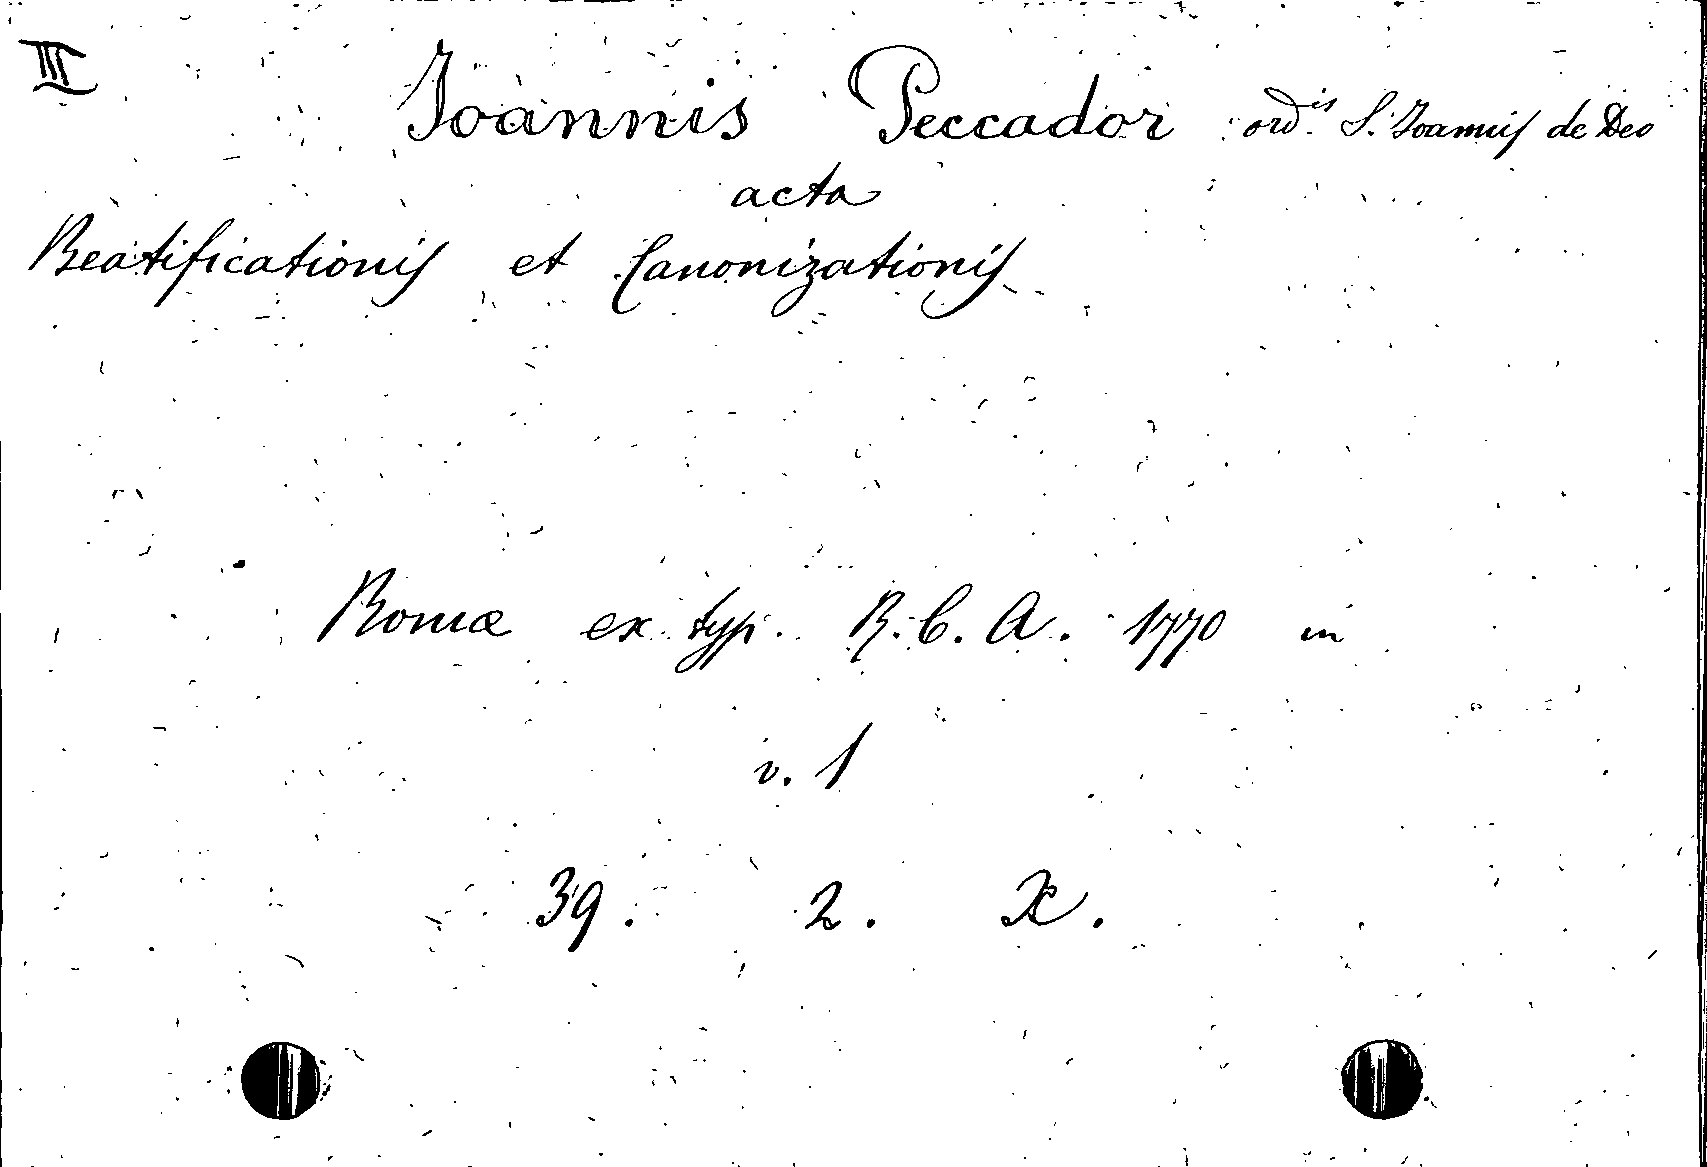 III
Ioannis Peccador ord.is S. Joannis de Deo
acta
Beatificationis et Canonizationis
Romæ ex typ. R. C. A. 1770 in
v. 1
39. 2. X.